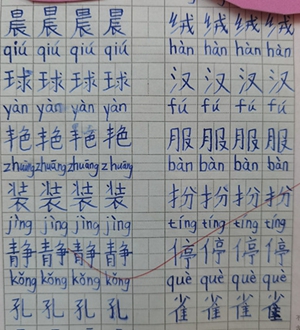 晨 晨 晨 晨 绒 绒 绒 绒
qiú qiú qiú qiú hàn hàn hàn hàn
球 球 球 球 汉 汉 汉 汉
yàn yàn yàn yàn fú fú fú fú
艳 艳 艳 艳 服 服 服 服
zhuāng zhuāng zhuāng zhuāng bàn bàn bàn bàn
装 装 装 装 扮 扮 扮 扮
jìng jìng jìng jìng tíng tíng tíng tíng
静 静 静 静 停 停 停 停
kǒng kǒng kǒng kǒng què què què què
孔 孔 孔 孔 雀 雀 雀 雀